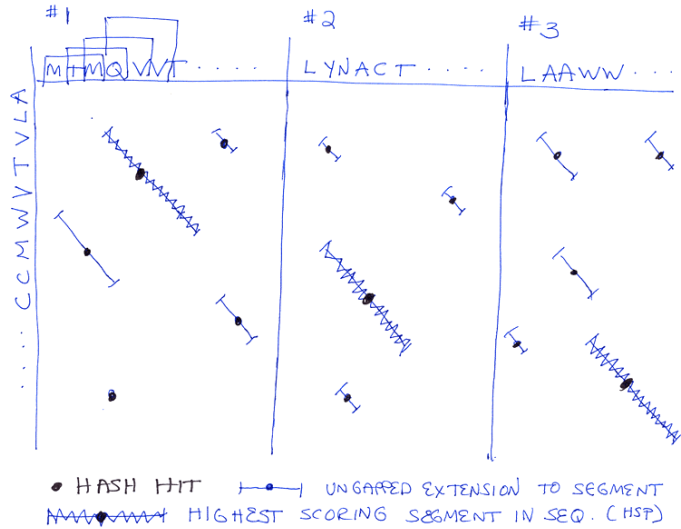 #1 #2 #3
MTMQVVT ..... LYNACT .... LAAWW ...
..... CCMWVTVLA
HASH HIT UNGAPPED EXTENSION TO SEGMENT
HIGHEST SCORING SEGMENT IN SEQ. (HSP)